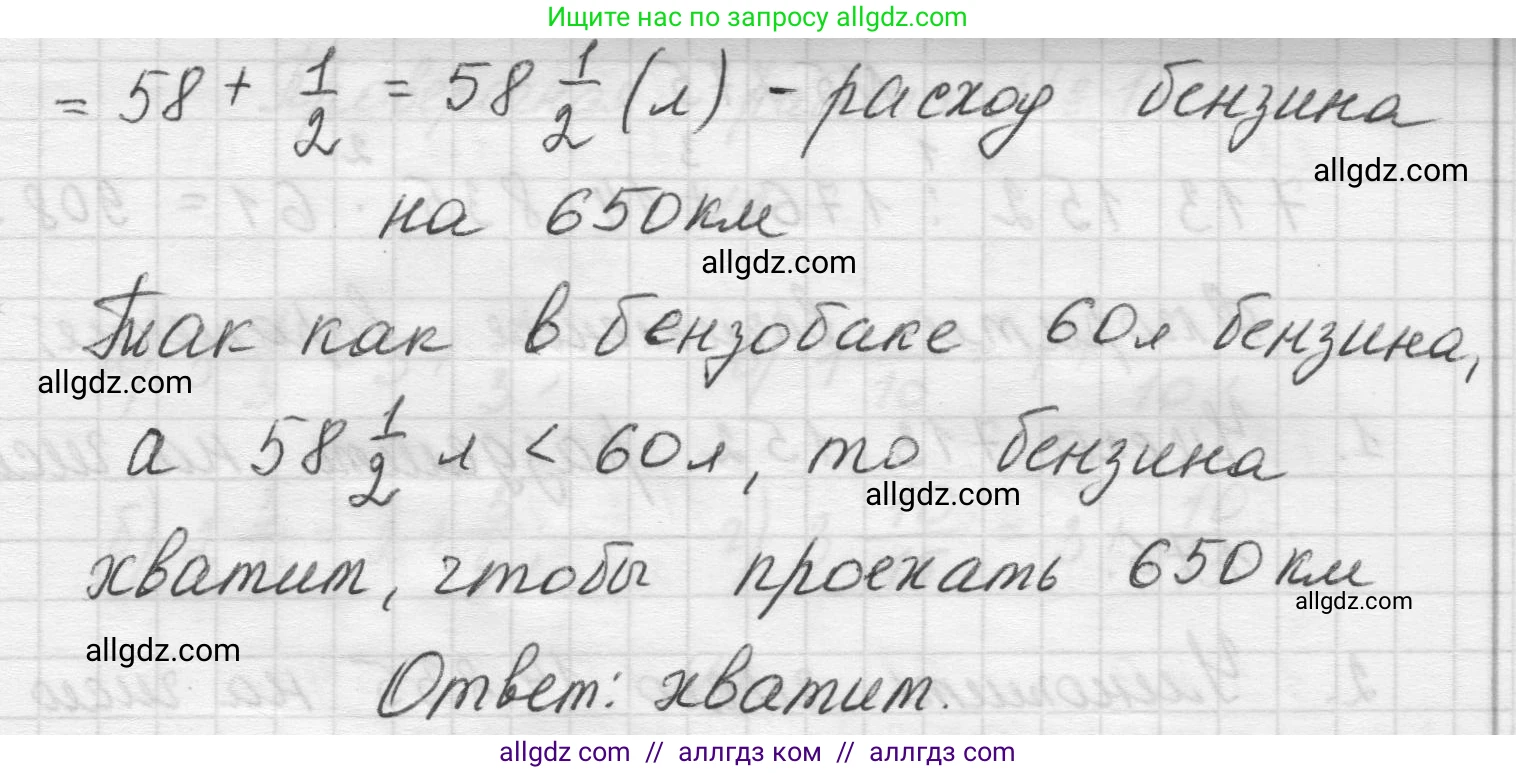 Ищите нас по запросу allgdz.com
= 58 + 1/2 = 58 1/2 (л) - расход бензина
allgdz.com
на 650 км
allgdz.com
Так как в бензобаке 60 л бензина,
allgdz.com
а 58 1/2 л < 60 л, то бензина
allgdz.com
хватит, чтобы проехать 650 км
allgdz.com
allgdz.com
Ответ: хватит.
allgdz com // аллгдз ком // аллгдз com